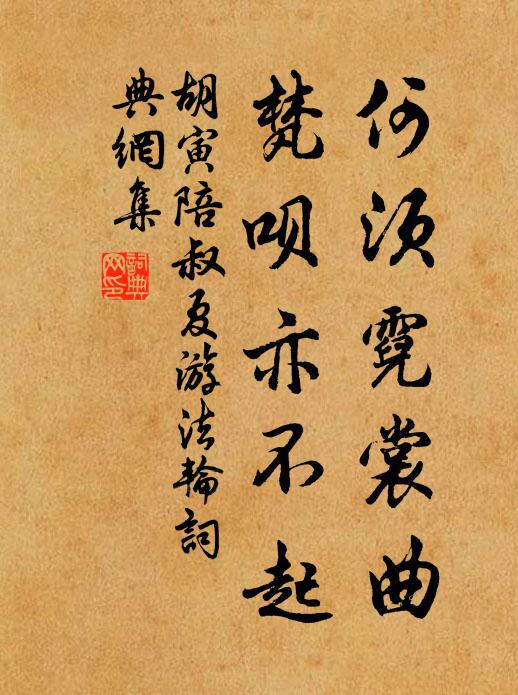 何須霓裳曲
梵唄亦不起
胡寅陪叔夏游法輪詞
典網集
詞典
网印